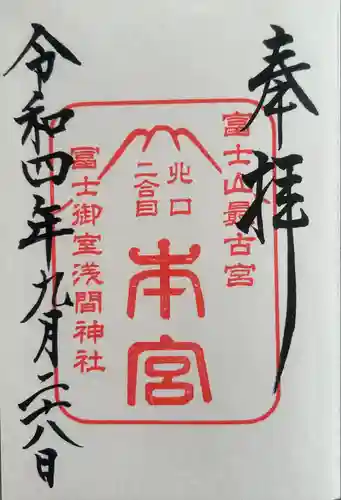 奉拝
富士山最古宮
北口
二合目
本宮
冨士御室浅間神社
令和四年九月二十八日